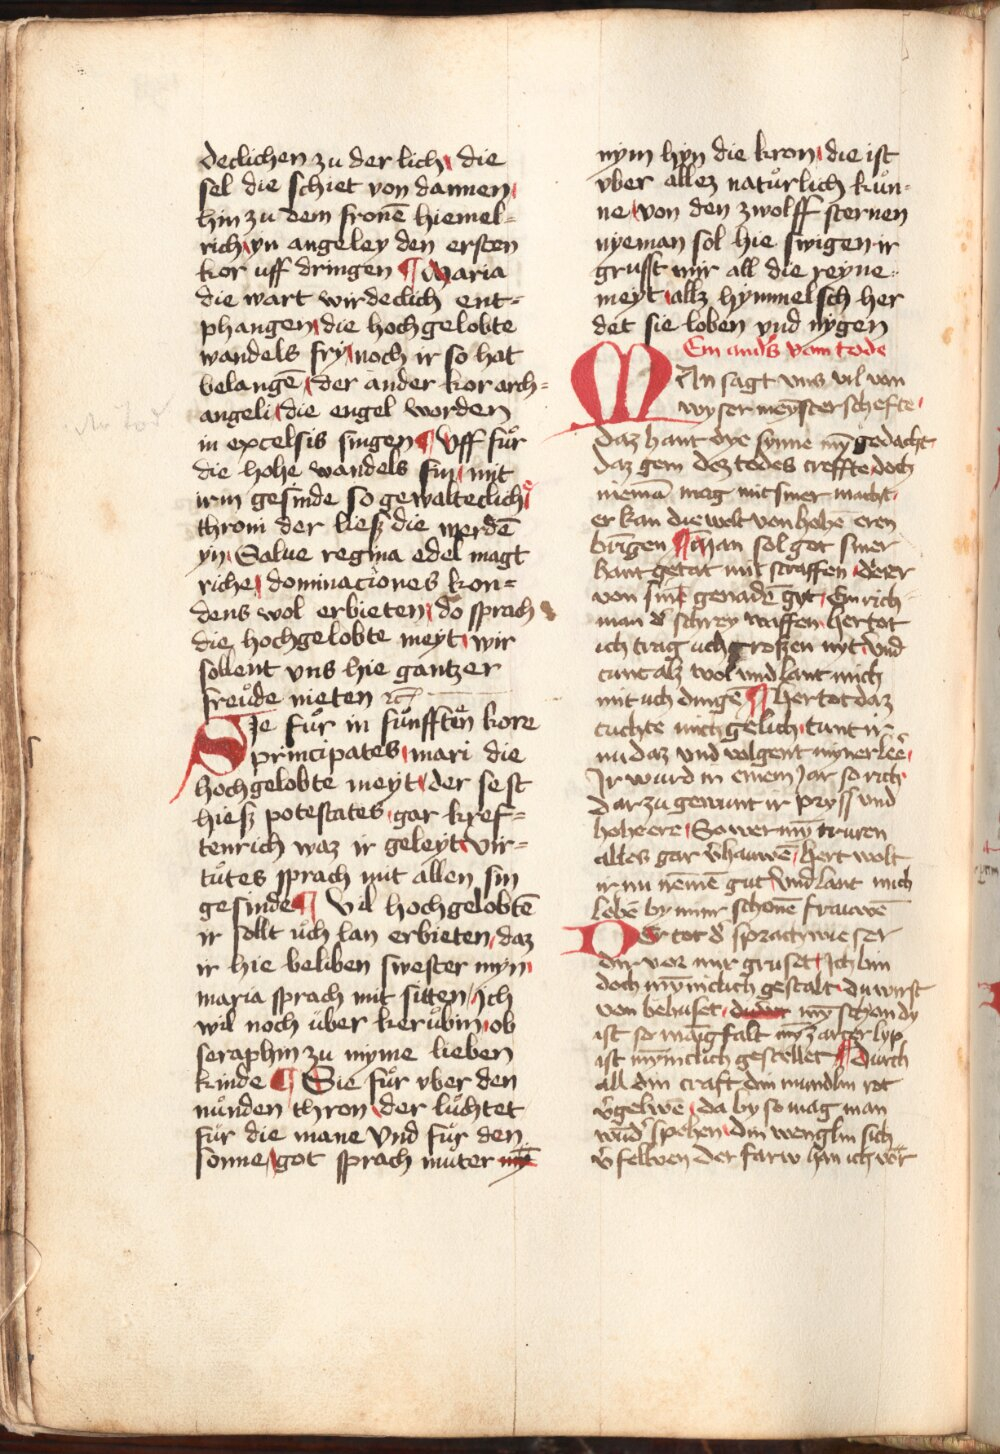 declichen zu der lich, die
sel die schiet von dannen,
hin zu dem fronē hiemel-
rich, yn angeley den ersten
kor uff dringen ¶ Maria
die wart wirdeclich ent-
phangen, die hochgelobte
wandels fry, noch ir so hat
belangē, der ander kor arch-
angeli, die engel worden
in excelsis singen ¶ Uff fuͦr
die hohe wandels frÿ, mit
irm gesinde so gewalteclich,
throni der liesz die werdē
yn, Salue regina edel magt
riche, dominaciones kon-
dens wol erbieten, do sprach
die hochgelobte meyt, wir
sollent vns hie gantzer
freuͦde nieten ꝛc
Sie fuͦr in fuͤnfften kore
principates, mari die
hochgelobte meyt, der sest
hiesz potestates, gar kref-
tenrich waz ir geleyt, vir-
tuͦtes sprach mit allen sin
gesinde ¶ Vil hochgelobtē
ir sollt uͤch lan erbieten, daz
ir hie beliben swester myn,
maria sprach mit sitten, Ich
wil noch uͤber keruͦbin, ob
seraphin zu myme lieben
kinde ¶ Sie fuͦr vber den
nuͤnden thron, der luͤchtet
fuͤr die mane Vnd fuͤr den
sonne, got sprach muter
nym hyn die kron, die ist
vber allez natuͤrlich kuͤn-
ne, von den zwolff sternen
nyeman sol hie swigen ir
grusst mir all die reyne-
meyt, allz hymmelsch her
det sie loben vnd nygen
Ein anders vom tode
MAn sagt vns vil von
wyser meysterschefte,
daz hant dye synne mȳ gedacht
daz gem dez todes treffte, doch
niemā mag mit siner macht,
er kan die welt von hohē eren
bringen ¶ Man sol got siner
hant getat nit straffen, derer
von sinē genadē gyt, Ein rich-
man d' schrey waffen, her tot
ich trag uch grossen nyt, Vnd
tunt alz wol vnd lant mich
mit uch dingē ¶ Her tot daz
tuchte mich gelich, tunt ir
nu daz vnd volgent myner lēe,
Ir wurd in einem Jar so rich,
dar zu gewunt ir pryss vnd
hohe ere, So wer mȳ truren
alles gar v'hauwē, hert wolt
ir nu nēmē gut, Vnd lant mich
lebē by mir schonē frauwē
Der tot d' sprach, wie ser
dir vor mir gruset, Ich bin
doch mȳniclich gestalt, du wirst
von behuset, mȳ schon dy
ist so manigfalt mȳ zarter lyp
ist mȳniclich gestellet ¶ Durch
all din craft din mundlin rot
v'gelwē, da by so mag man
wūd' spehen, din wenglin sich
v'felwen der farw han ich vor